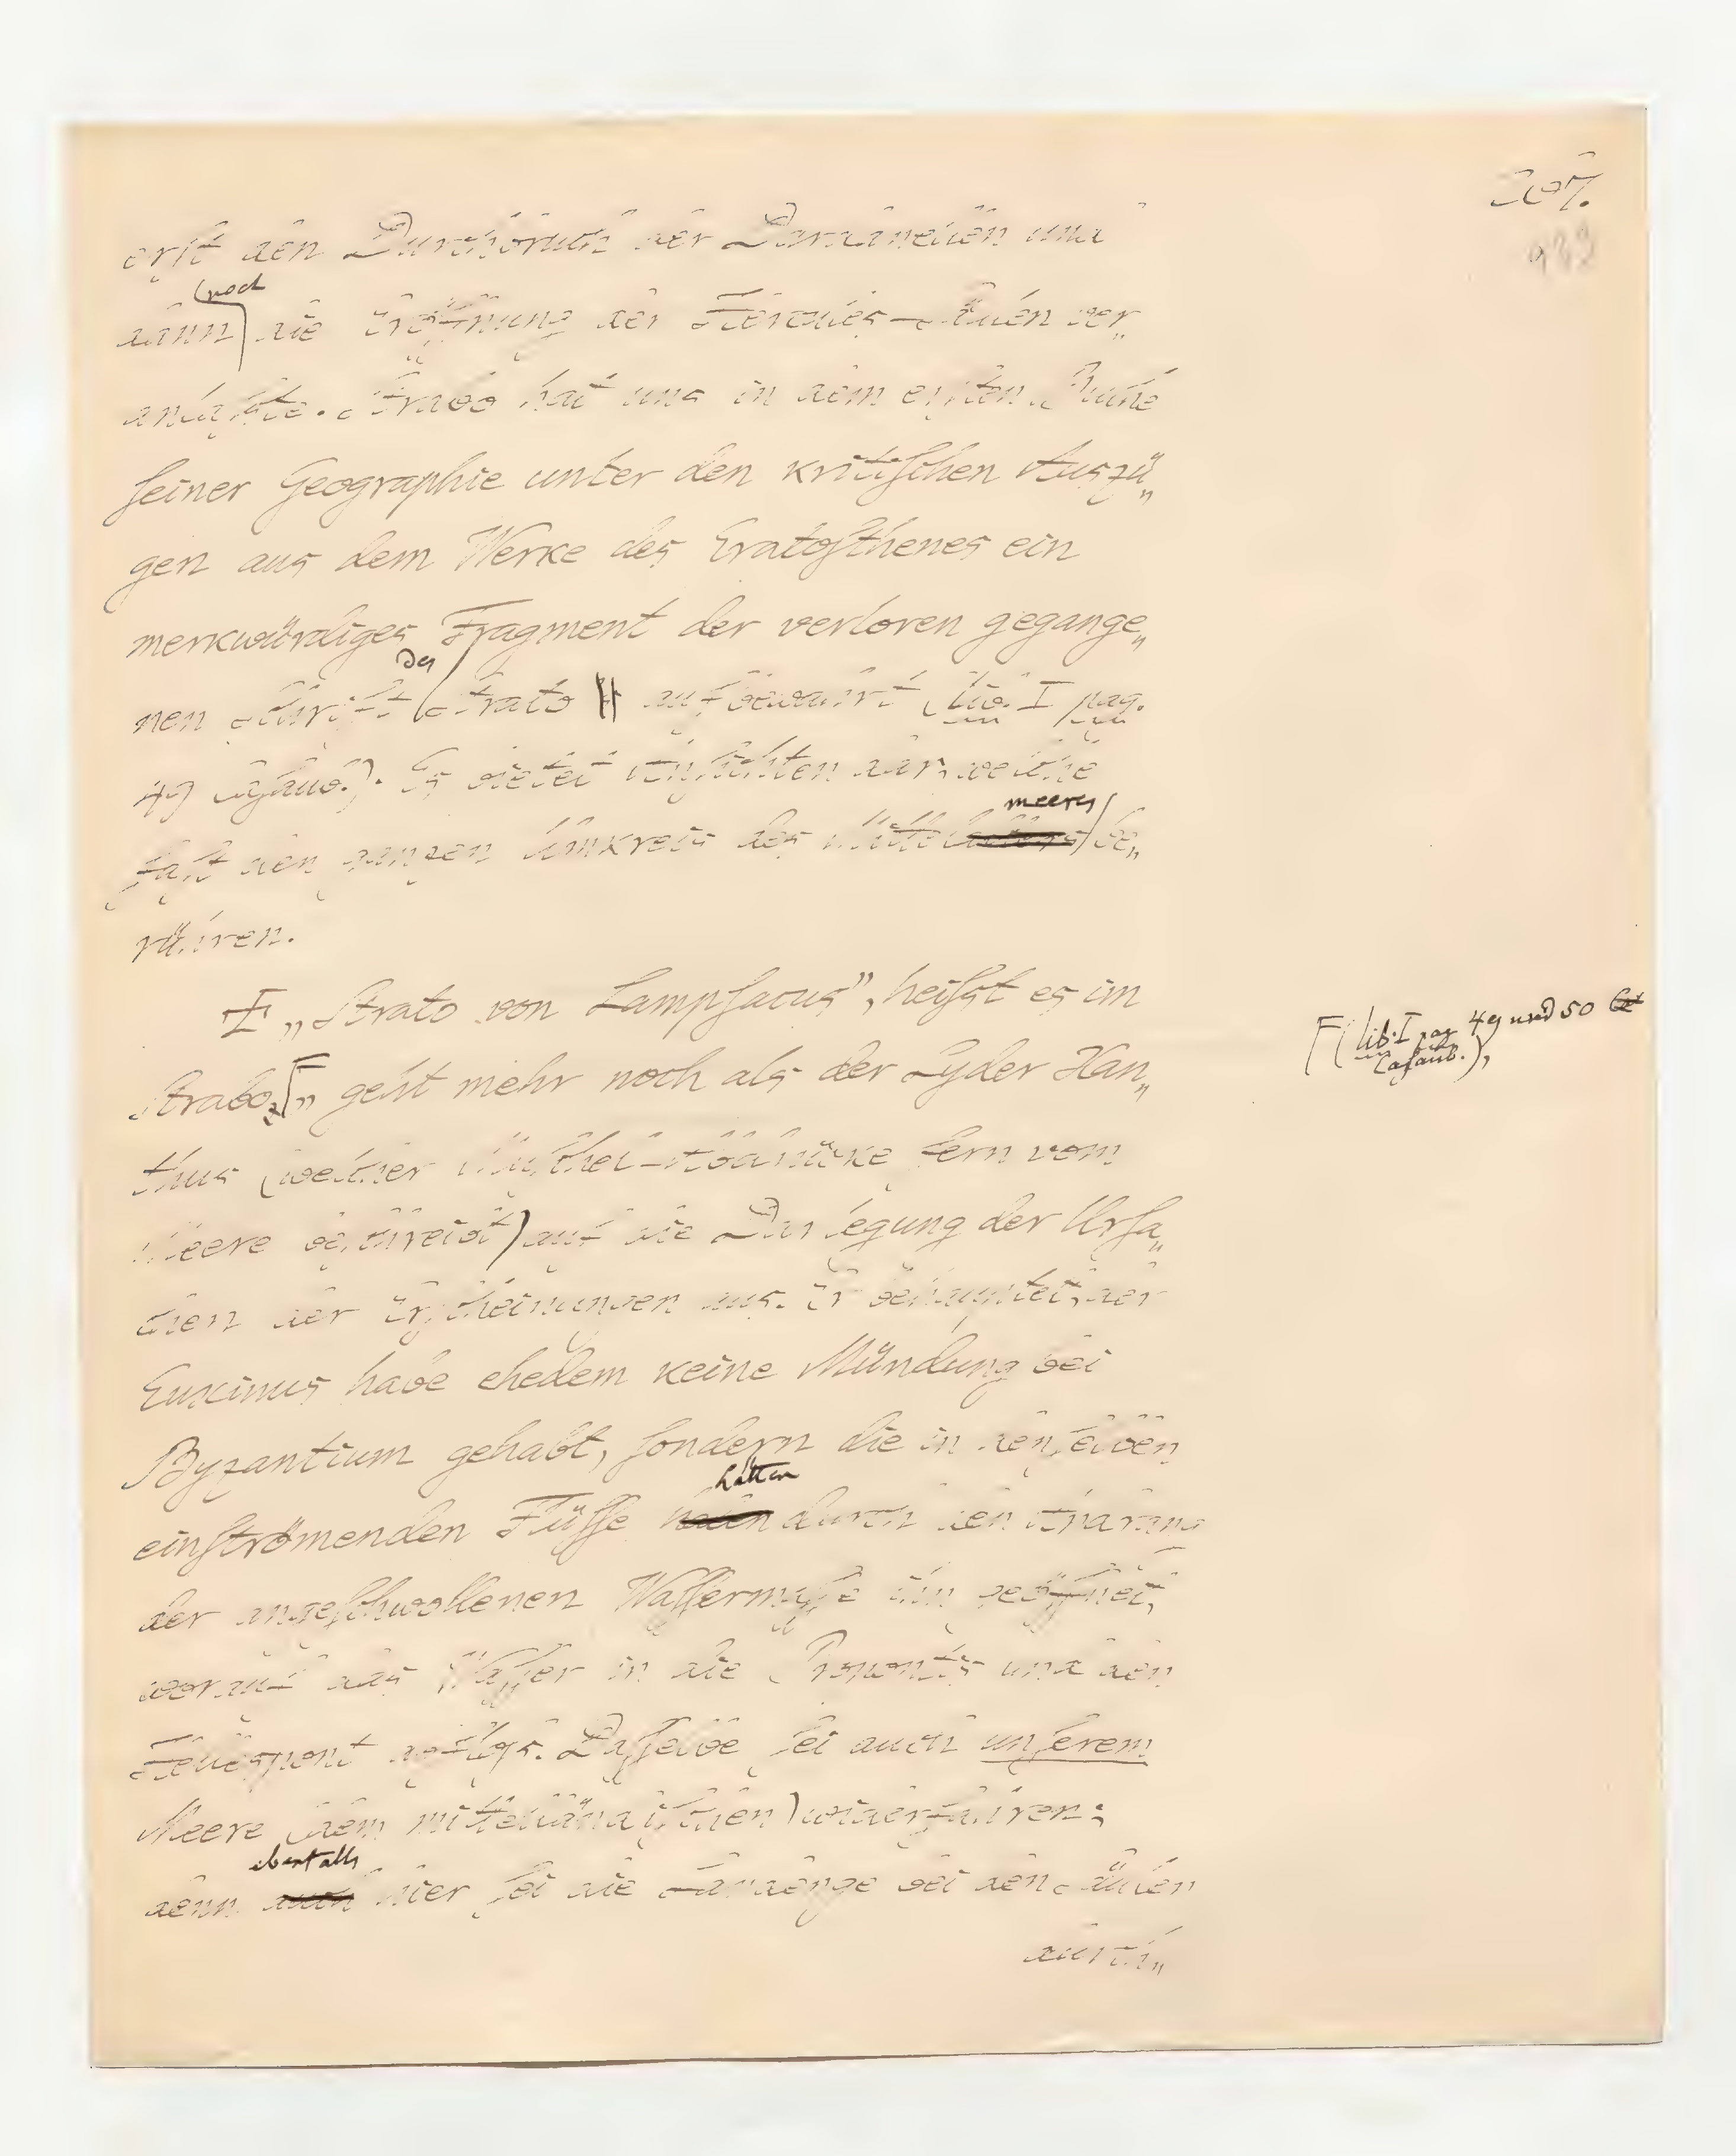 207.
erst den Durchbruch der Dardanellen und
noch
dann die Eröffnung der Hercules-Säulen ver„
anlaßte. Strabo hat uns in dem ersten Buche
seiner Geographie unter den kritischen Auszü„
gen aus dem Werke des Eratosthenes ein
merkwürdiges Fragment der verloren gegange„
des
nen Schrift Strato aufbewahrt (lib. I pag.
49 Casaub.). Es bietet Ansichten dar, welche
meeres
fast den ganzen Umkreis des Mittel be„
rühren.
„Strato von Lampsacus”, heißt es im
F(lib. I pag 49 und 50
Casaub.),
Strabo, „geht mehr noch als der Lyder Xan„
thus (welcher Muschel-Abdrücke fern vom
Meere beschreibt) auf die Darlegung der Ursa„
chen der Erscheinungen aus. Er behauptet, der
Euxinus habe ehedem keine Mündung bei
Byzantium gehabt, sondern die in denselben
hätten
einströmenden Flüsse durch den Andrang
der angeschwollenen Wassermasse ihn geöffnet,
worauf das Wasser in die Propontis und den
Hellespont abfloß. Dasselbe sei auch unserem
Meere (dem mittelländischen) widerfahren;
ebenfalls
denn auch hier sei die Landenge bei den Säulen
durch„